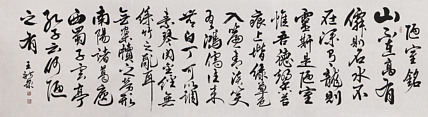 陋室銘
山不在高有
僊則名水不
在深有龍則
靈斯是陋室
惟吾德馨苔
痕上堦綠草色
入簾青談笑
有鴻儒往來
無白丁可以調
素琴閱金經無
絲竹之亂耳
無案牘之勞形
南陽諸葛廬
西蜀子雲亭
孔子云何陋
之有